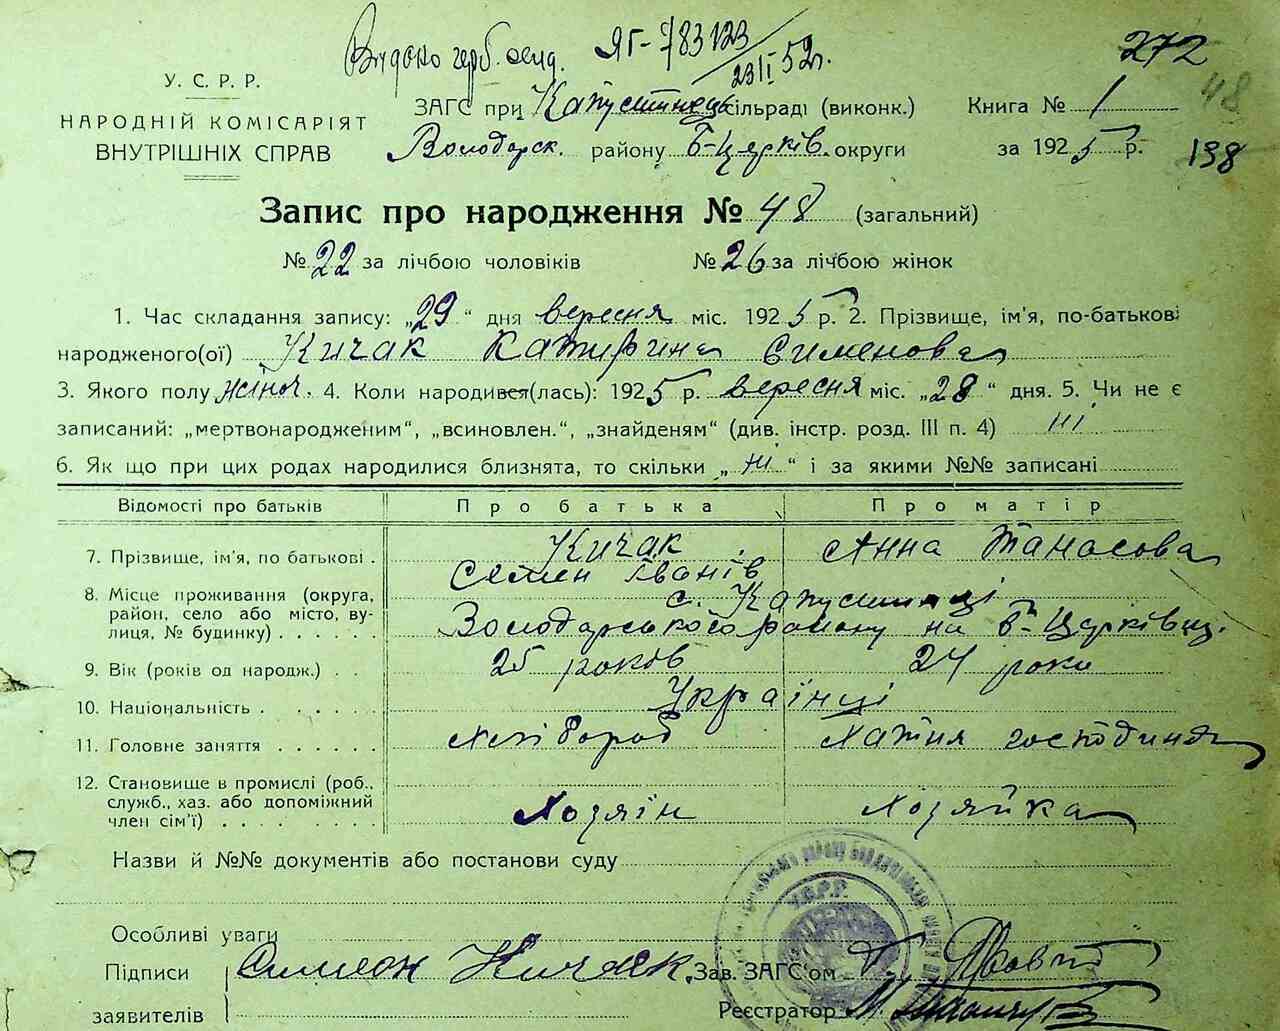 Видано герб. свід. ЯГ-783123
23/II 52г.
272
48
У. С. Р. Р.
НАРОДНІЙ КОМІСАРІЯТ
ВНУТРІШНІХ СПРАВ
ЗАГС при Капустинець сільраді (виконк.)
Володарск. району Б-Церків. округи
Книга № 1
за 1925 р.
138
Запис про народження № 48 (загальний)
№ 22 за лічбою чоловіків № 26 за лічбою жінок
1. Час складання запису: „29“ дня вересня міс. 1925 р. 2. Прізвище, ім'я, по-батькові
народженого(ої) Кичак Катирина Сименова
3. Якого полу жіноч. 4. Коли народився(лась): 1925 р. вересня міс. „28“ дня. 5. Чи не є
записаний: „мертвонародженим“, „всиновлен.“, „знайденям“ (див. інстр. розд. III п. 4) ні
6. Як що при цих родах народилися близнята, то скільки „ні“ і за якими №№ записані
Відомості про батьків Про батька Про матір
7. Прізвище, ім'я, по батькові . Кичак Анна Танасова
Семен Іванів
8. Місце проживання (округа, с. Капустинці
район, село або місто, ву-
лиця, № будинку) . . . . . . Володарського району на Б-Церківщ.
9. Вік (років од народж.) . . 25 роков 24 роки
10. Національність . . . . . . Українці
11. Головне заняття . . . . . . Хлібороб Хатня господиня
12. Становище в промислі (роб.,
служб., хаз. або допоміжний
член сім'ї) . . . . . . Хозяін Хозяйка
Назви й №№ документів або постанови суду
У.С.Р.Р.
Особливі уваги
Підписи Симеон Кичак. Зав. ЗАГС'ом
заявителів Реєстратор